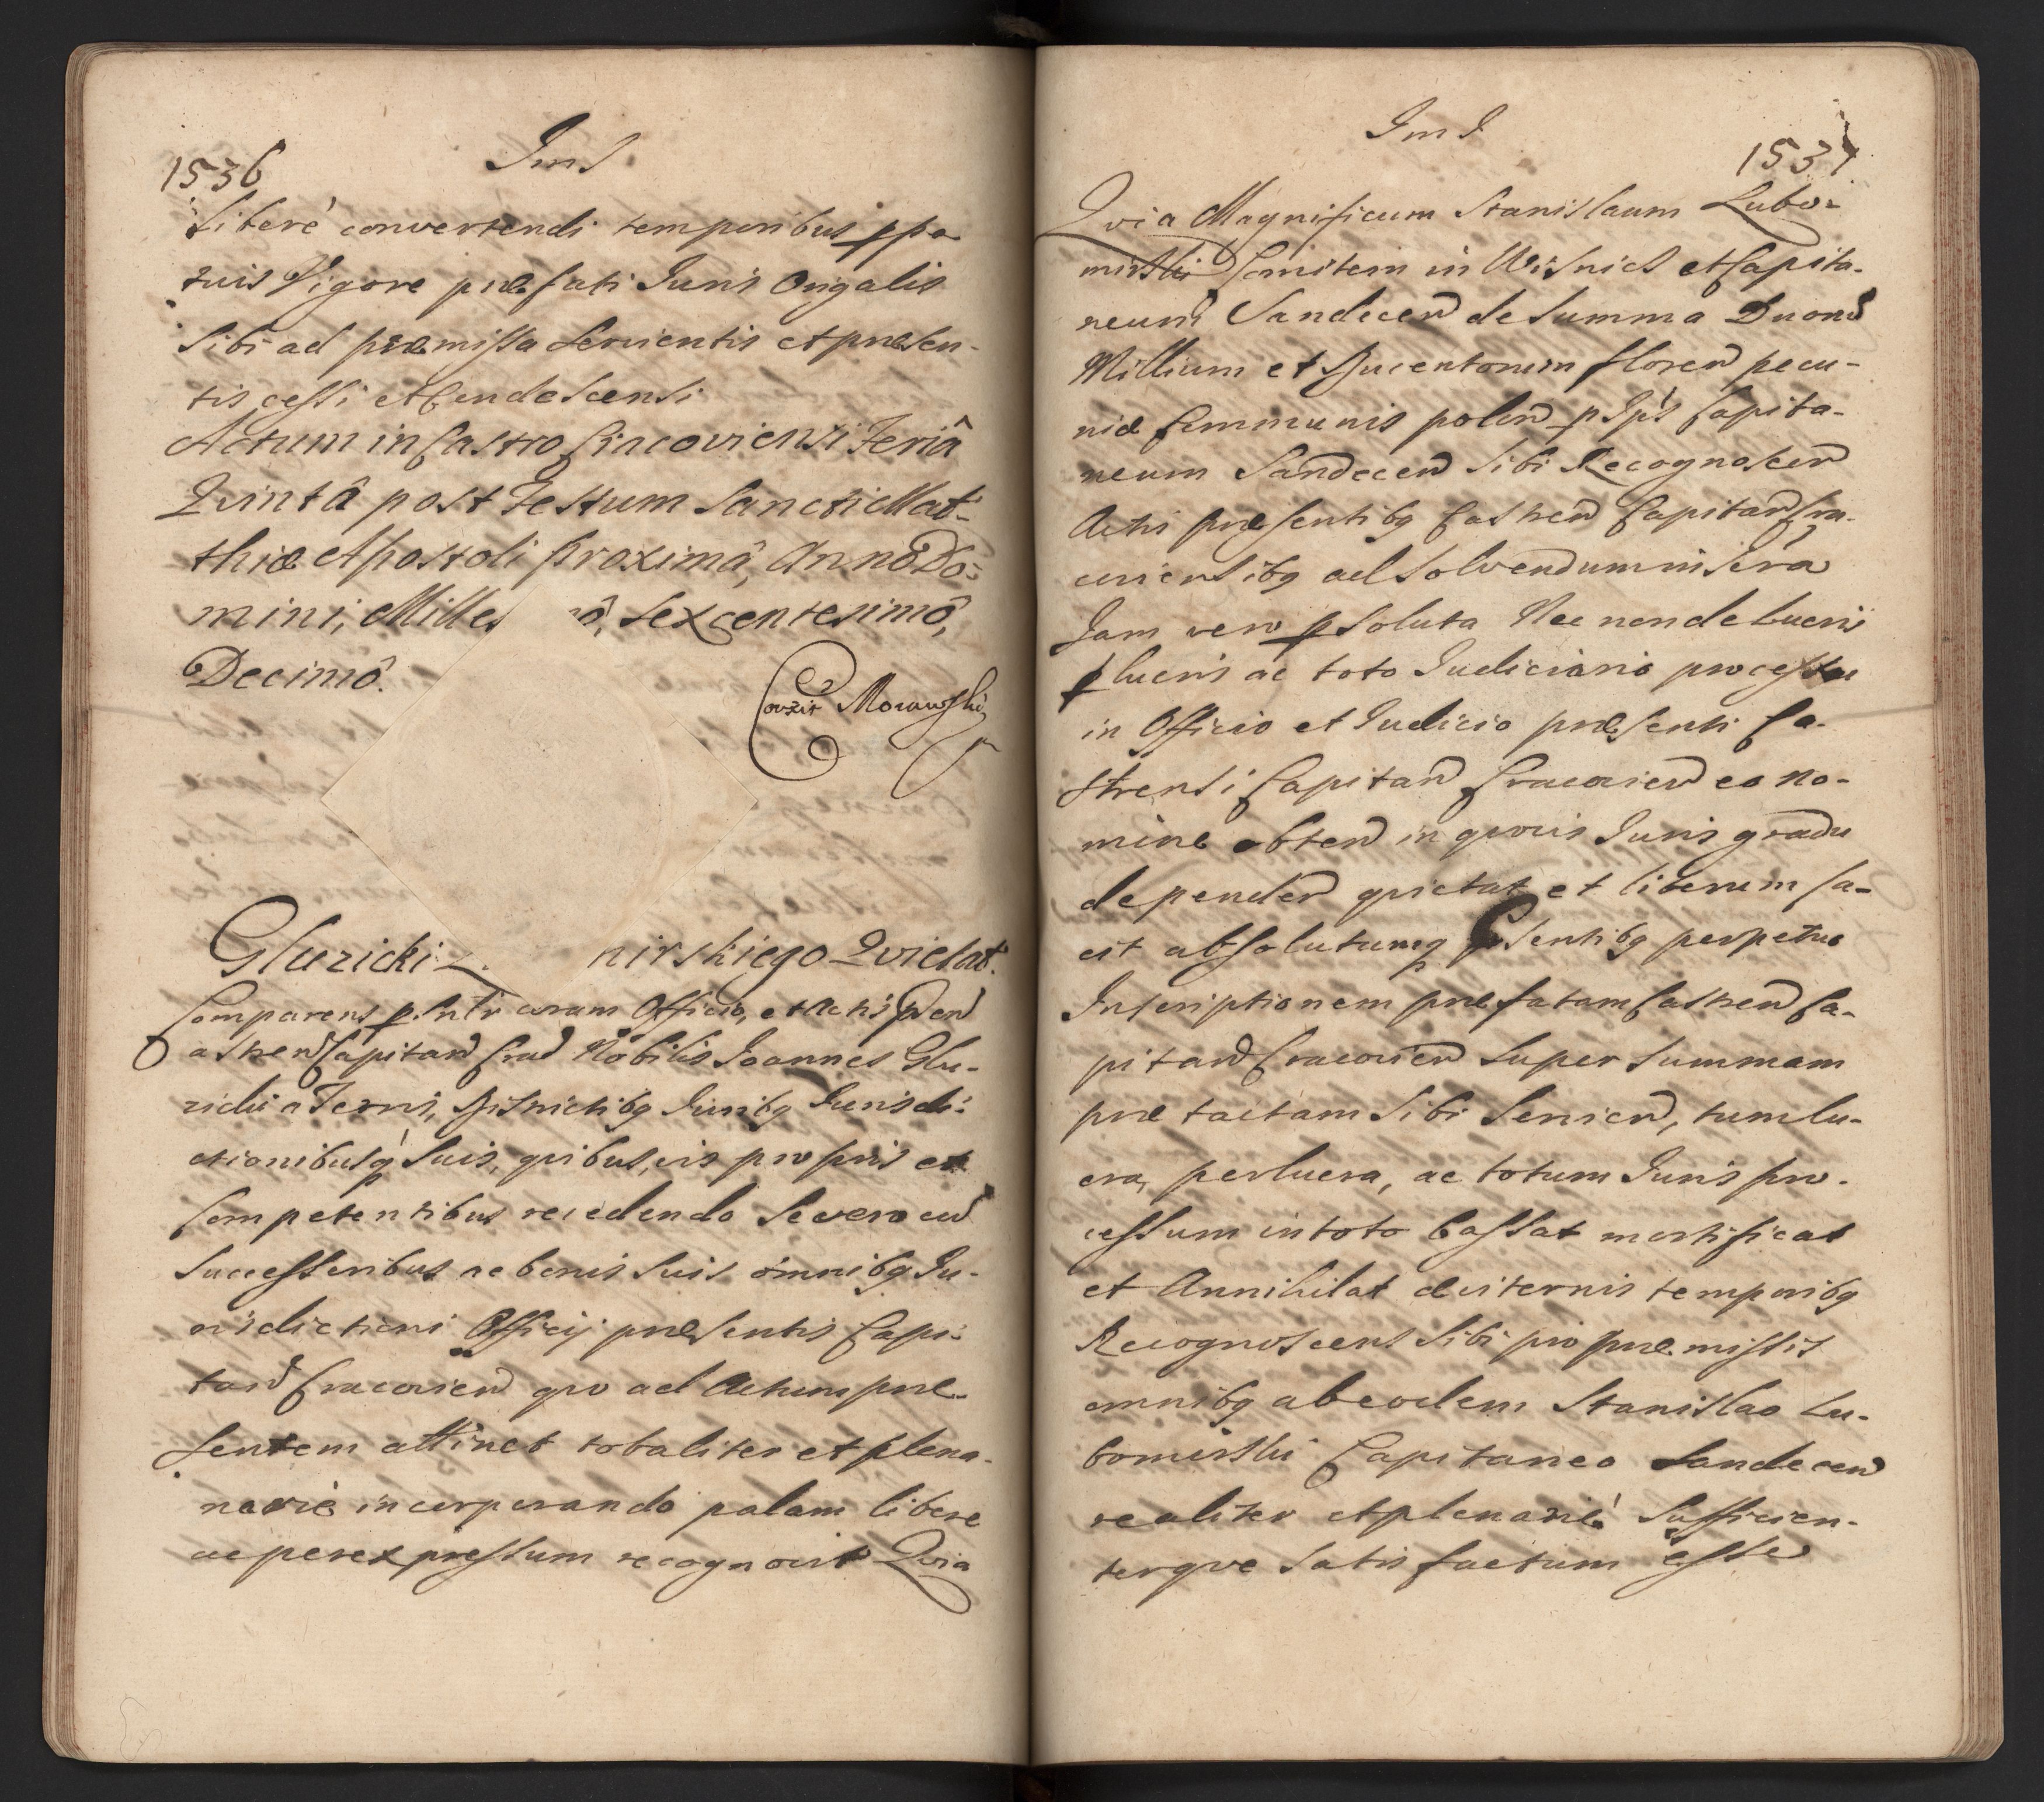 1536
Jms
Liberè convertendi temporibus ppe
tuis Vigore præfati Juris Origalis
Sibi ad præmissa Servientis et præsen-
tis cessi et Condescensi
Actum in Castro Cracoviensi Feriâ
Qvintâ post Festum Sancti Mat-
thiæ Apostoli proximâ, Anno Do-
mini, Milles ô, Sexcentesimô,
Decimô.
Corrxit Morawski
Gluzicki nirskiego Qvietat.
Comparens coram Officio, et Actis
astren Capitan Crac Nobilis Joannes Glu-
zicki a Terris, Districtibq Juribq Jurisdi-
ctionibusq Suis, qvibus, vis proprys et
Competentibus recedendo Se vero cu
Successoribus ac bonis Suis omnibq Ju-
risdictioni Officij præsentis Capi-
tan Cracovien qvo ad Actum præ-
sentem attinet totaliter et plena-
narie incorporando palam libere
ac per expressum recognovit Qvia
Jms
1537
Qvia Magnificum Stanislaum Lubo-
mirski Comitem in Wisnicz et Capita-
neum Sandecen de Summa Duoru
Millium et Ducentorum floren pecu-
niæ Communis polon p Capita-
neum Sandecen Sibi Recognoscen
Actis præsentibq Castren Capitan Cra-
coviensibq ad Solvendum
Jam vero psoluta Nec non de Lucris
plucris ac toto Judiciario processu
in Officio et Judicio præsenti Ca-
strensi Capitan Cracovien eo no-
mine obten in qvovis Juris gradu
dependen qvietat et liberum fa-
cit absolutumq psentibq perpetuo
Inscriptionem præfatam Castren Ca-
pitan Cracovien Super Summam
prætactam Sibi Servien, tum lu-
cra, perlucra, ac totum Juris pro-
cessum in toto Cassat mortificat
et Annihilat æviternis temporibq
Recognoscens Sibi pro præmissis
omnibq ab eodem Stanislao Lu-
bomirski Capitaneo Sandecen
realiter et plenariè Sufficien-
terqve Satisfactum esse